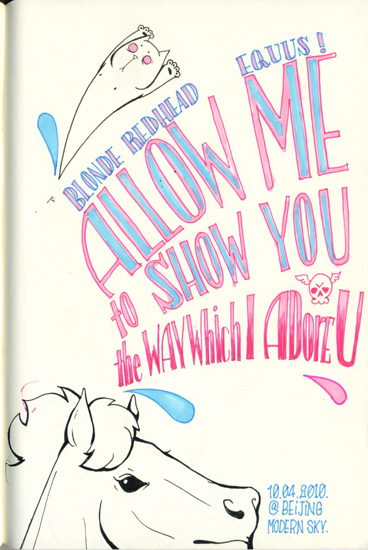 EQUUS!
BLONDE REDHEAD
ALLOW ME
to SHOW YOU
the WAY Which I ADORE U
10.04.2010.
@ BEiJING
MODERN SKY.